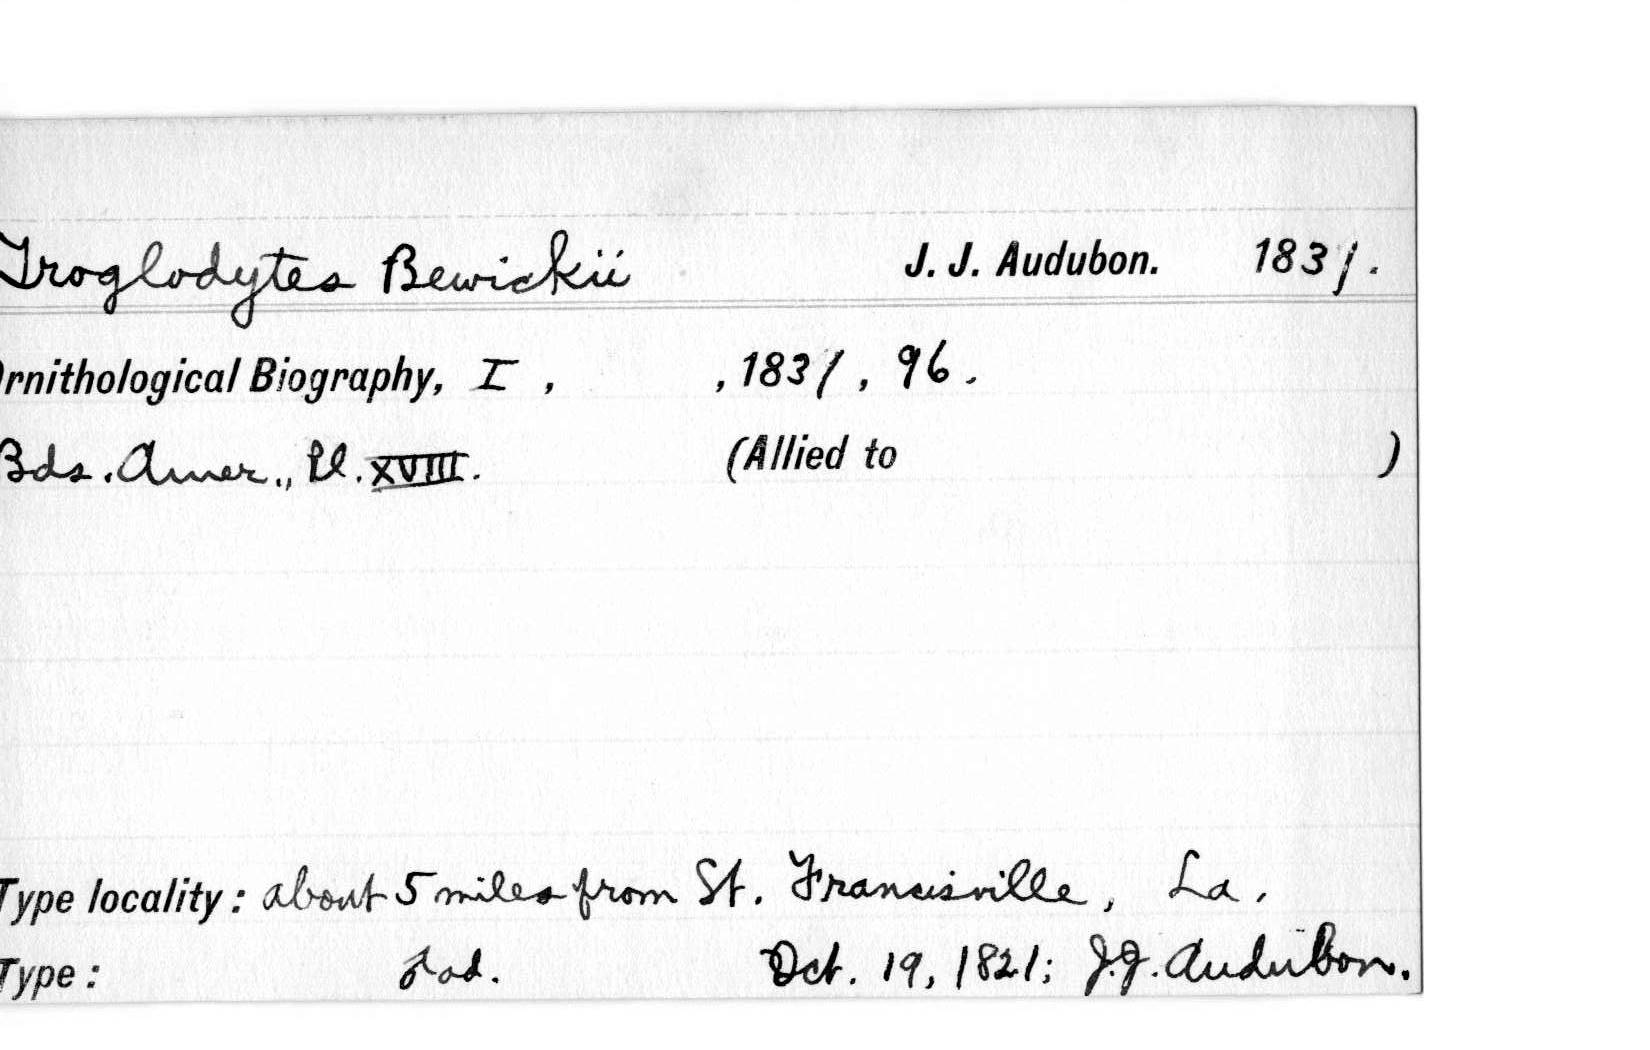 Troglodytes Bewickii J. J. Audubon. 1831.
Ornithological Biography, I , , 1831 , 96 .
Bds. Amer., Pl. XVIII. (Allied to )
Type locality : about 5 miles from St. Francisville, La.
Type : ad. Oct. 19, 1821; J.J. Audubon.